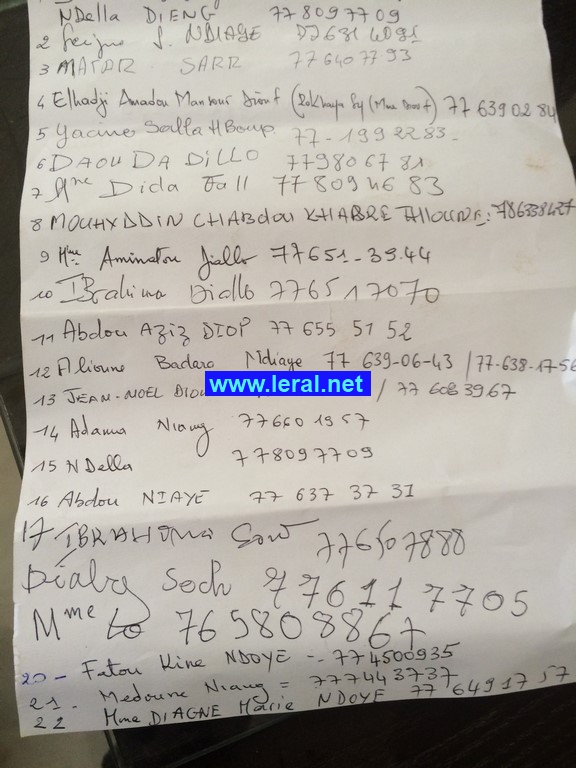 NDella DIENG 77 809 77 09
2 S. NDIAYE
3 MATAR SARR 77 640 77 93
4 Elhadji Amadou Mansour Diouf (Rokhaya Sy (Mme Diouf) 77 639 02 84
5 Yacine Salla MBoup 77-199 22 83-
6 DAOUDA DiLLO 77 980 67 81
7 Mme Dida Fall 77 809 46 83
8 CHABdou KHABRE
9 Mme Aminatou Jiallo 77651-39.44
10 IBrahima Diallo 776517070
11 Abdou AZiZ DIOP 77 655 51 52
12 Alioune Badara Ndiaye 77 639-06-43 / 77-638-17-56
www.leral.net
13 JEAN-NOEL / 77 608 39 67
14 Adama Niang 77660 19 57
15 NDella 77 809 77 09
16 Abdou NIAYE 77 637 37 31
17 IBRAHIMA Sow 776507888
77 611 7705
Mme Lo 765808867
20 - Fatou Kine NDOYE -- 774500935
21 - Medoune Niang = 777443737
22 Mme DIAGNE Marie NDOYE 77 649 17 57